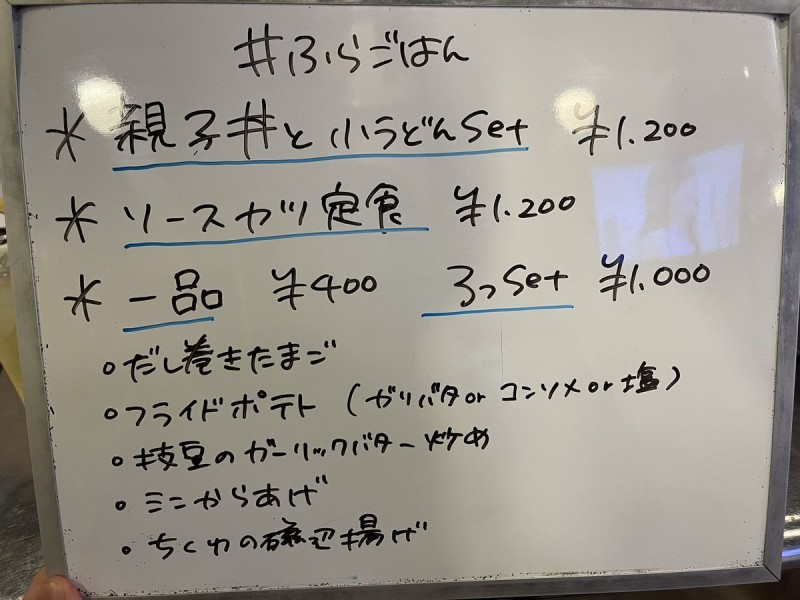 #ふらごはん
* 親子丼と小うどんSet ¥1.200
* ソースカツ定食 ¥1.200
* 一品 ¥400 3つSet ¥1.000
・だし巻きたまご
・フライドポテト (ガリバタor コンソメor塩)
・枝豆のガーリックバター炒め
・ミニからあげ
・ちくわの磯辺揚げ